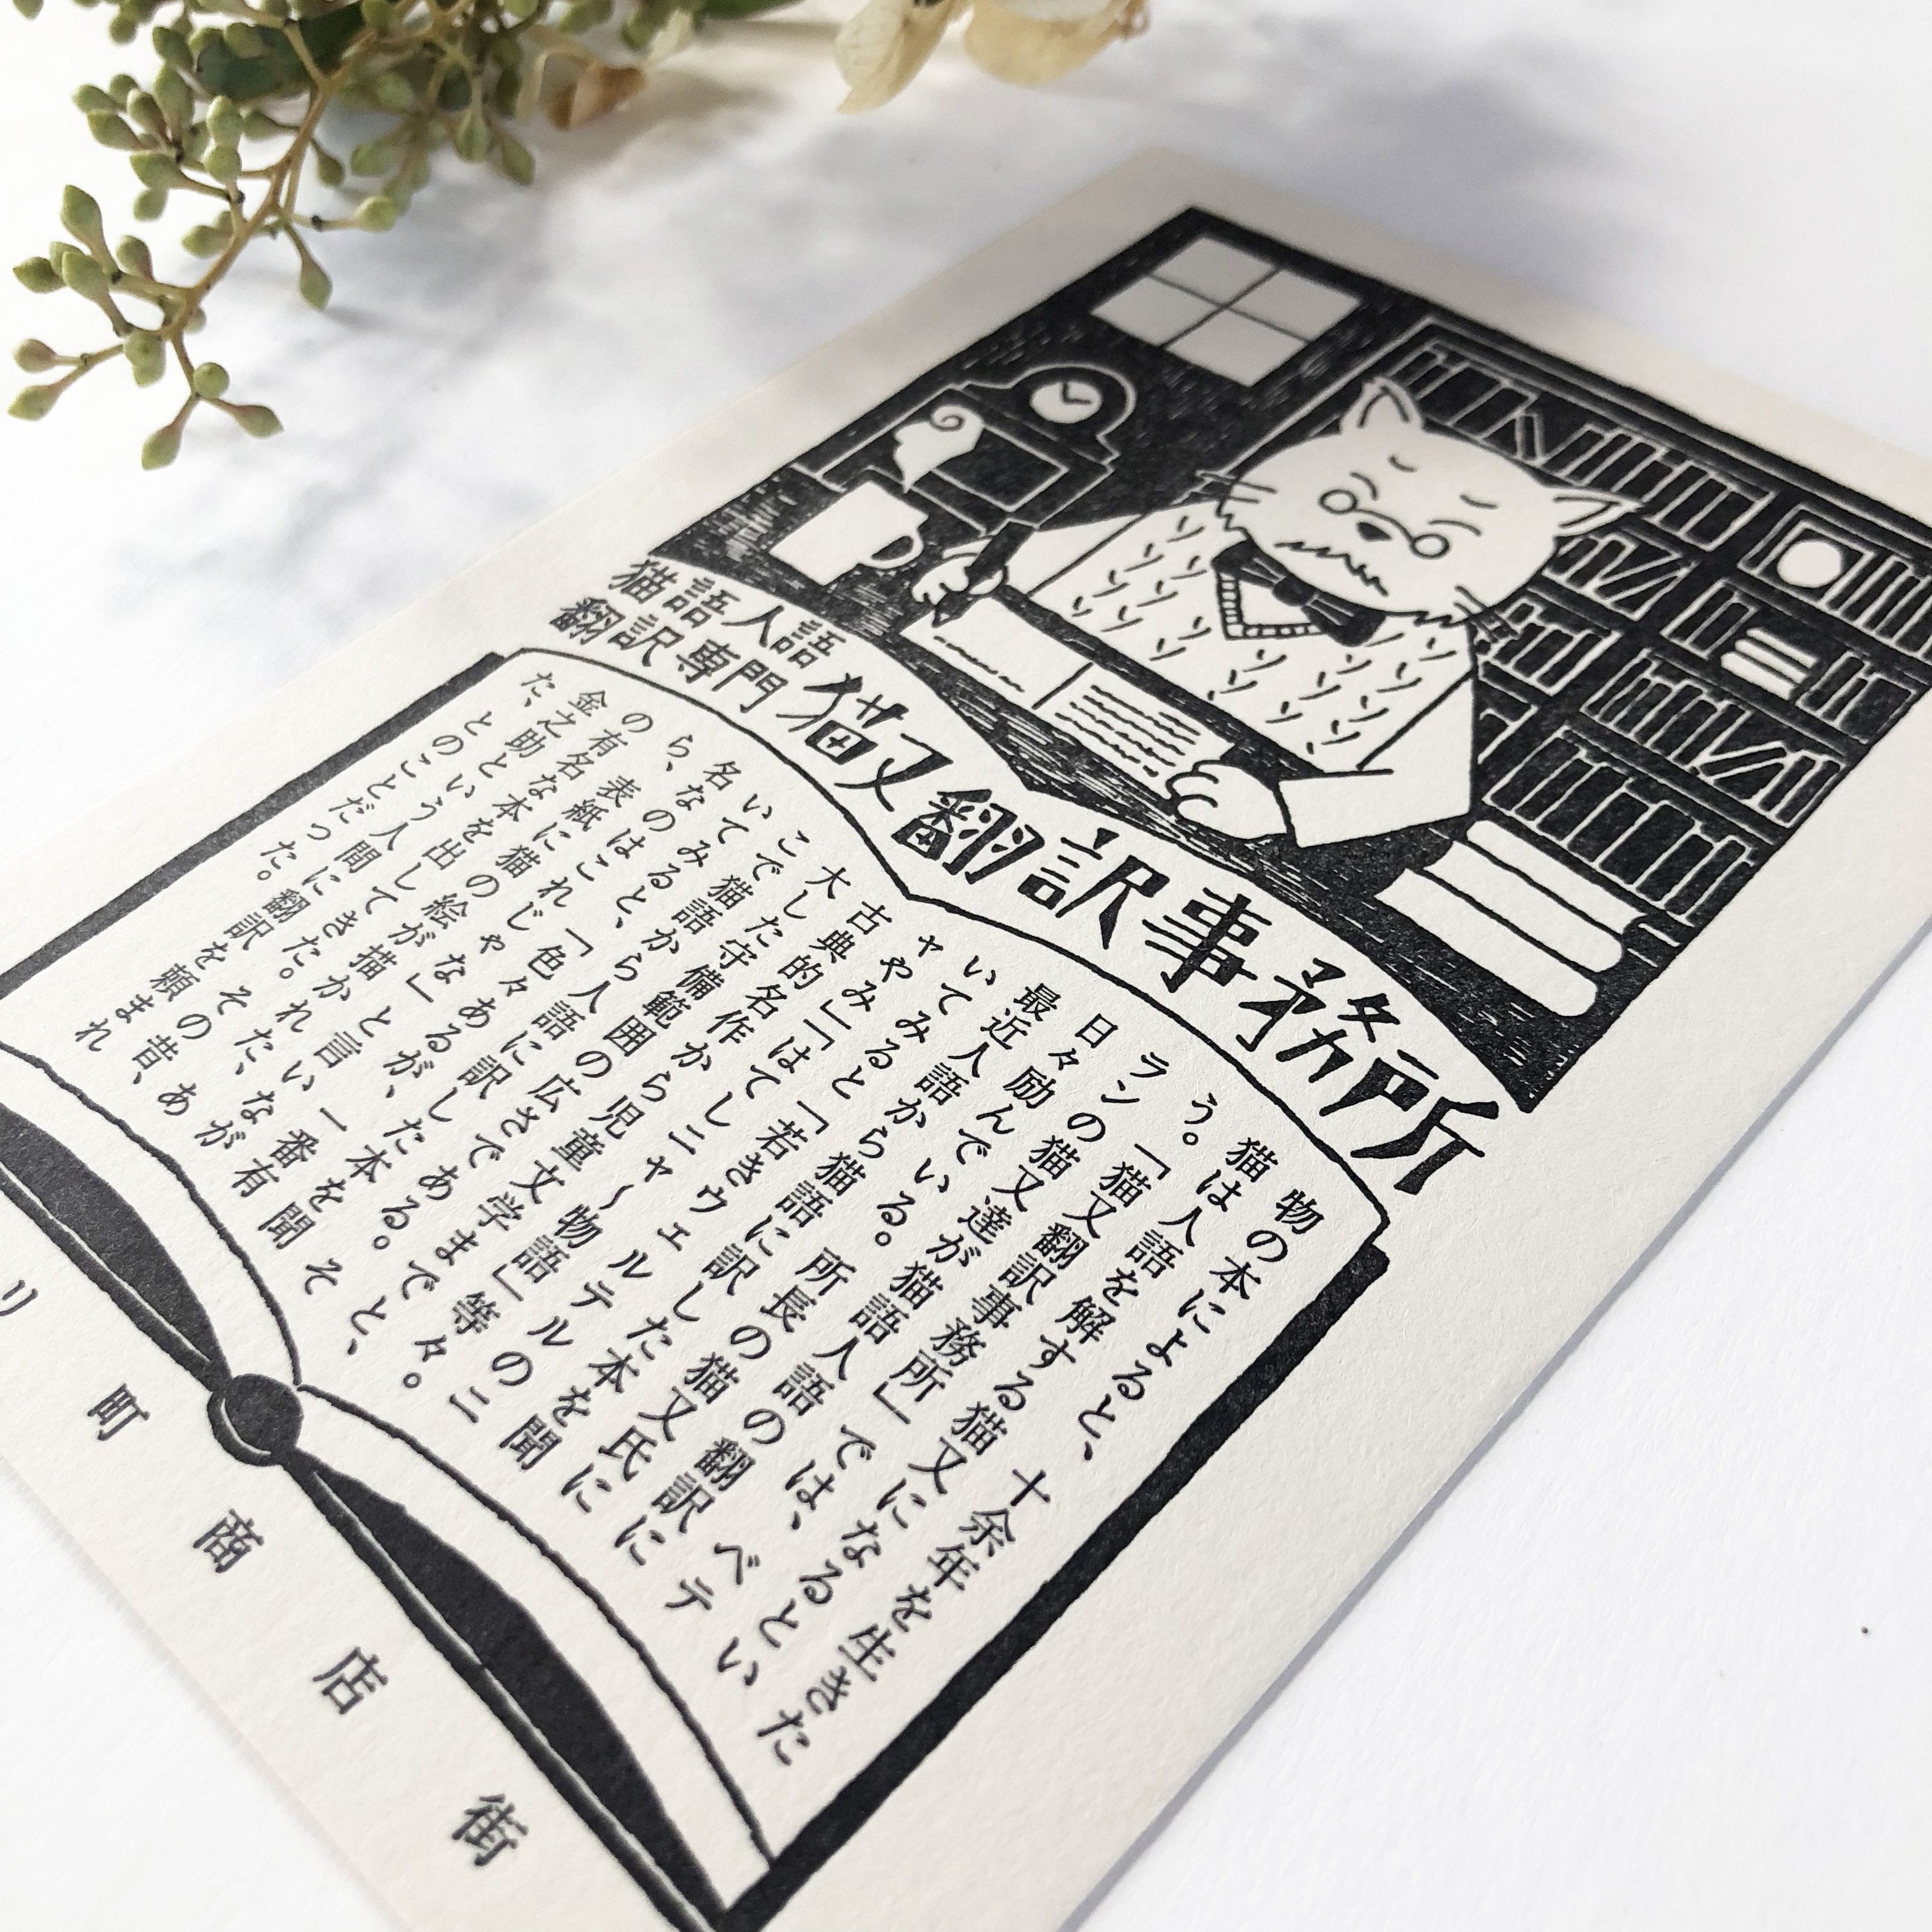 猫語人語
翻訳専門
猫又翻訳事務所
物の本によると、十余年を生きた
猫は人語を解する猫又になるとい
う。「猫又翻訳事務所」では、ベテ
ランの猫又達が猫語人語の翻訳に
日々励んでいる。所長の猫又氏に
最近人語から猫語に訳した本を聞
いてみると「若きウェルテルのニ
ャやみ」「はてしニャ〜物語」等々。
古典的名作から児童文学まで と、
大した守備範囲の広さである。そ
こで猫語から人語に訳した本を聞
いてみると、「色々あるが、一番有
名なのはこれじゃな」と言いなが
ら、表紙に猫の絵が描かれた、あ
の有名な本を出してきた。その昔、
金之助という人間に翻訳を頼まれ
た、とのことだった。
リ町商店街